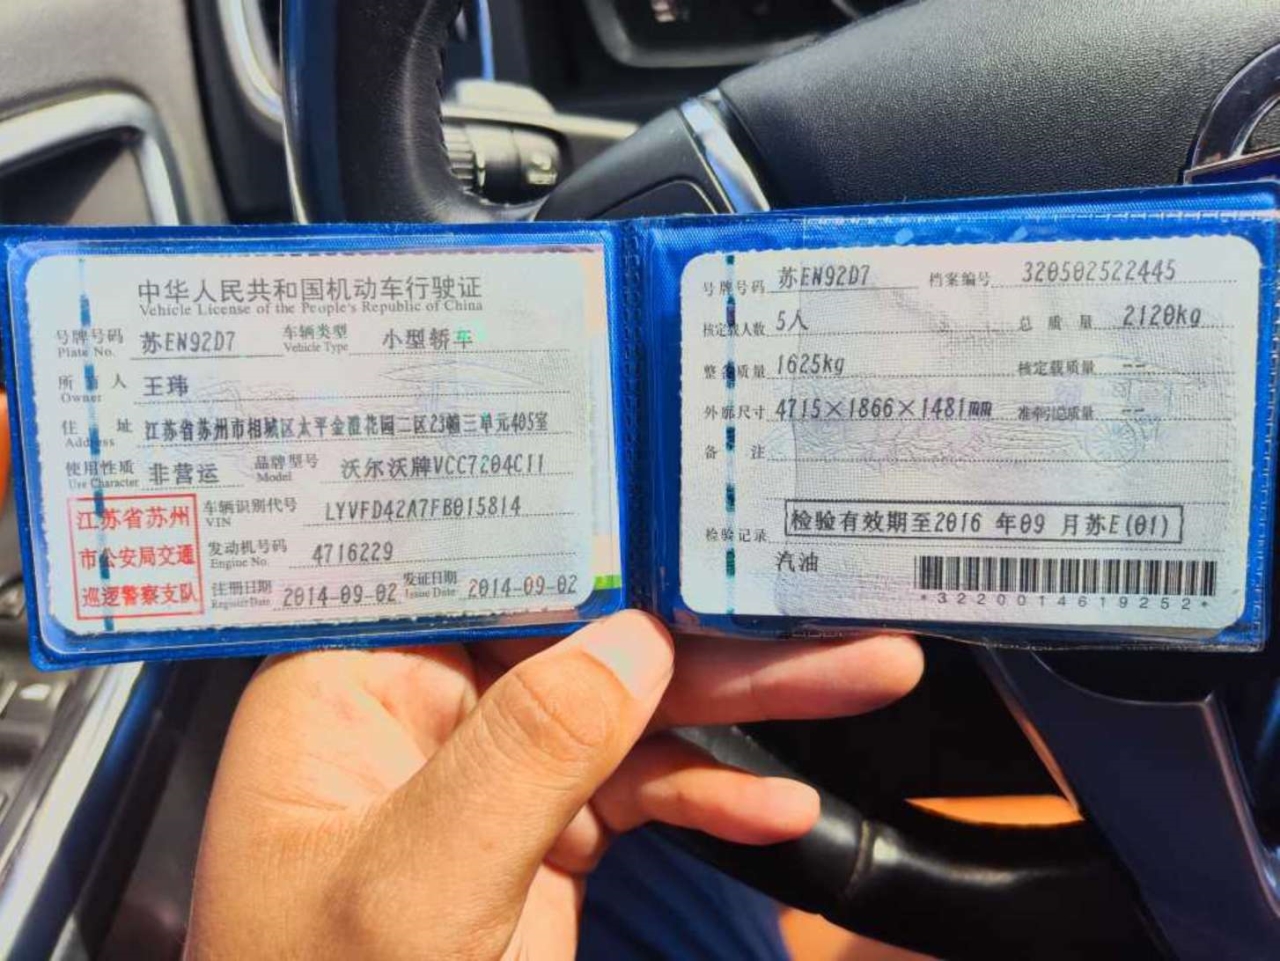 中华人民共和国机动车行驶证
Vehicle License of the People's Republic of China
号牌号码 苏EN92D7 车辆类型 小型轿车
Plate No. Vehicle Type
所有人 王玮
Owner
住址 江苏省苏州市相城区太平金澄花园二区23幢三单元405室
Address
使用性质 非营运 品牌型号 沃尔沃牌VCC7204C11
Use Character Model
江苏省苏州
市公安局交通
巡逻警察支队
车辆识别代号 LYVFD42A7FB015814
VIN
发动机号码 4716229
Engine No.
注册日期 2014-09-02 发证日期 2014-09-02
Register Date Issue Date
号牌号码 苏EN92D7 档案编号 320502522445
核定载人数 5人 总质量 2120kg
整备质量 1625kg 核定载质量 --
外廓尺寸 4715×1866×1481mm 准牵引总质量 --
备注
检验记录 检验有效期至2016年09月苏E(01)
汽油
*3220014619252*